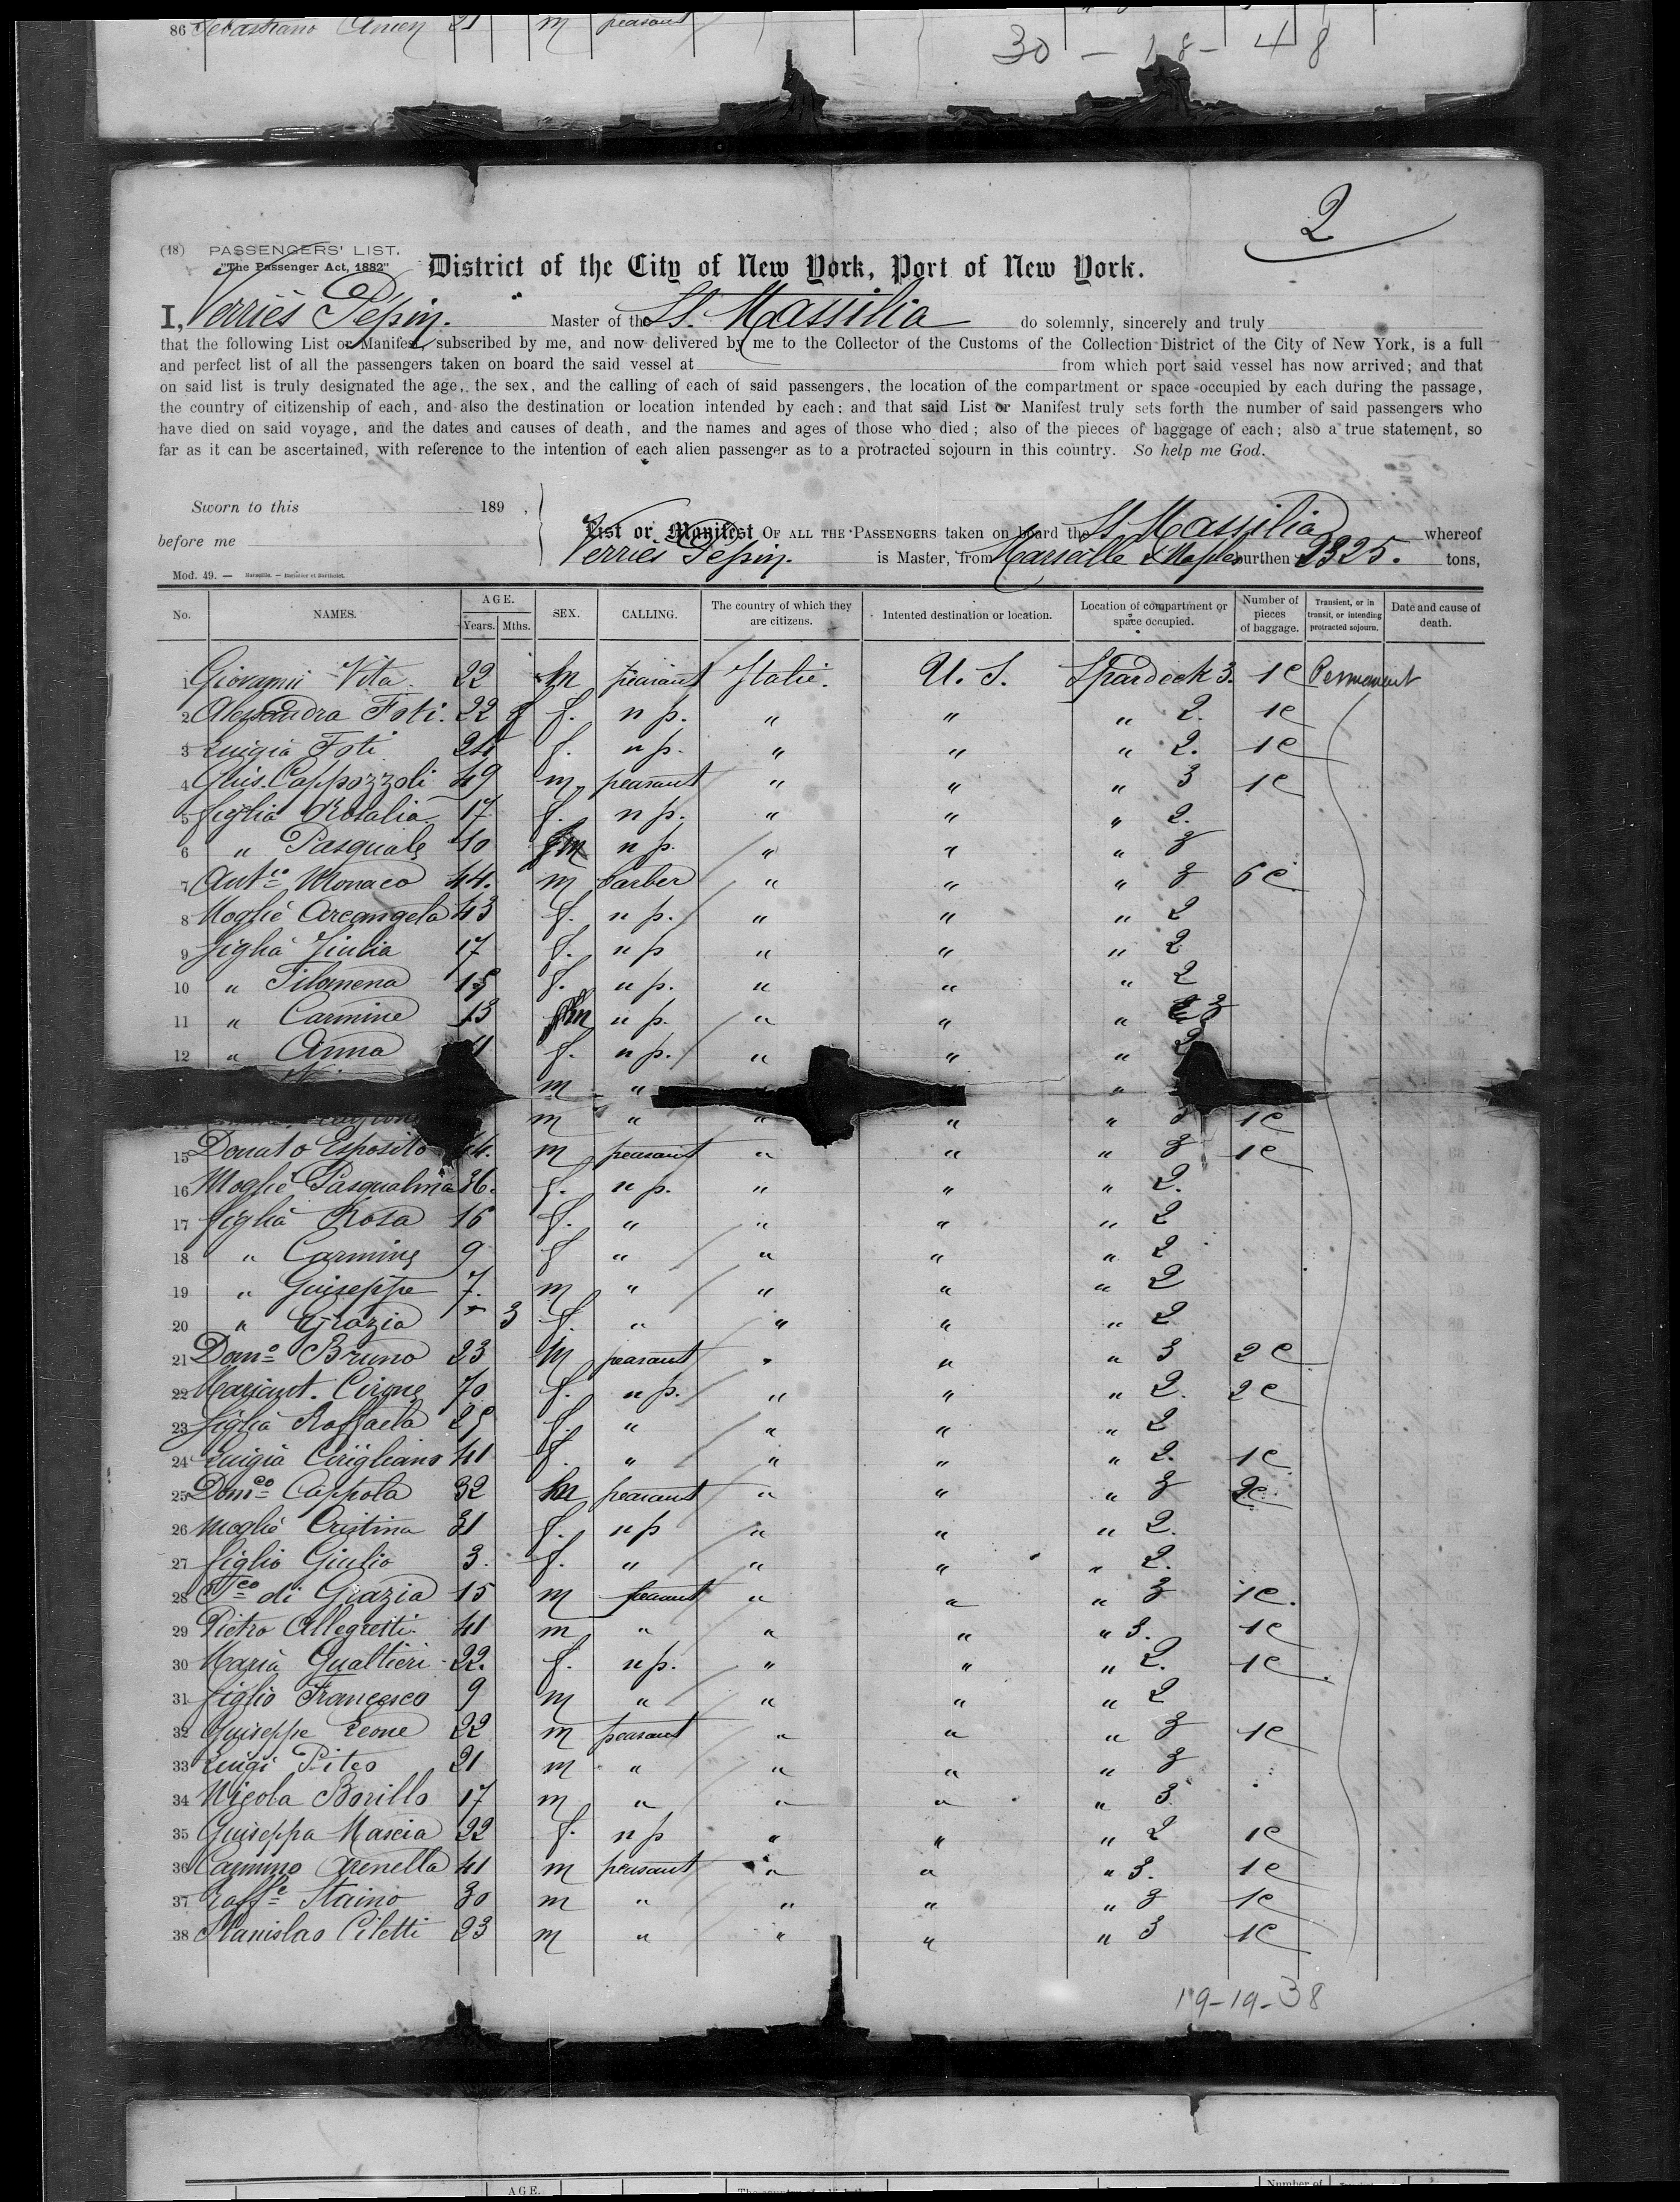 86 Sebastiano 21 m peasant
30 - 18 - 48
2
(48) PASSENGERS' LIST.
"The Passenger Act, 1882"
District of the City of New York, Port of New York.
I, Verriès Pépin. Master of the SS. Massilia do solemnly, sincerely and truly
that the following List or Manifest, subscribed by me, and now delivered by me to the Collector of the Customs of the Collection District of the City of New York, is a full
and perfect list of all the passengers taken on board the said vessel at from which port said vessel has now arrived; and that
on said list is truly designated the age, the sex, and the calling of each of said passengers, the location of the compartment or space occupied by each during the passage,
the country of citizenship of each, and also the destination or location intended by each: and that said List or Manifest truly sets forth the number of said passengers who
have died on said voyage, and the dates and causes of death, and the names and ages of those who died; also of the pieces of baggage of each; also a true statement, so
far as it can be ascertained, with reference to the intention of each alien passenger as to a protracted sojourn in this country. So help me God.
Sworn to this 189 ,
before me
List or Manifest OF ALL THE PASSENGERS taken on board the SS. Massilia whereof
Verriès Pépin. is Master, from Marseille & Naples burthen 2325. tons,
Mod. 49. — Marseille. — Barlatier et Barthelet.
No. NAMES. AGE. Years. Mths. SEX. CALLING. The country of which they are citizens. Intented destination or location. Location of compartment or space occupied. Number of pieces of baggage. Transient, or in transit, or intending protracted sojourn. Date and cause of death.
1 Giovanni Vita 22 m peasant Italie. U. S. Spardeck 3. 1c Permanent
2 Alessandra Foti. 22 f. n p. " " " 2. 1c
3 Luigia Foti 24 f. n p. " " " 2. 1c
4 Gius. Cappozzoli 49 m. peasant " " " 3 1c
5 figlia Rosalia 17 f. n p. " " " 2.
6 " Pasquale 10 m n p. " " " 3
7 Antco Monaco 44. m barber " " " 3 6c
8 Moglie Arcangela 43 f. n p. " " " 2
9 figlia Giulia 17 f. n p " " " 2
10 " Filomena 15 f. n p. " " " 2
11 " Carmine 13 m n p. " " " 3
12 " Anna f. n p. " " " 2
m " "
m " " " " 3 1c
15 Donato Esposito 44. m peasant " " " 3 1c
16 Moglie Pasqualina 36. f. n p. " " " 2.
17 figlia Rosa 16 f. " " " " 2
18 " Carmine 9 f " " " " 2
19 " Guiseppe 7. m " " " " 2
20 " Grazia " 3 f. " " " " 2
21 Domo Bruno 23 m peasant " " " 3 2c
22 Mariant. Cirone 70 f. n p. " " " 2. 2c
23 figlia Raffaela 25 f. " " " " 2
24 Luigia Cirigliano 41 f. " " " " 2. 1c
25 Domco Cappola 32 m peasant " " " 3 2c
26 moglie Cristina 31 f. n p " " " 2.
27 figlio Giulio 3. f. " " " " 2.
28 Fco di Grazia 15 m peasant " " " 3 1c.
29 Pietro Allegretti 41 m " " " " 3. 1c
30 Maria Gualtieri 22. f. n p. " " " 2. 1c
31 figlio Francesco 9 m " " " " 2
32 Guiseppe Leone 22 m peasant " " " 3 1c
33 Luigi Piteo 21 m " " " " 3
34 Nicola Borillo 17 m " " " " 3
35 Guiseppa Mascia 22 f. n p " " " 2 1c
36 Carmino Arenella 41 m peasant " " " 3. 1c
37 Raffe Staino 30 m " " " " 3 1c
38 Stanislao Ciletti 23 m " " " " 3 1c
19-19-38
AGE. Number of